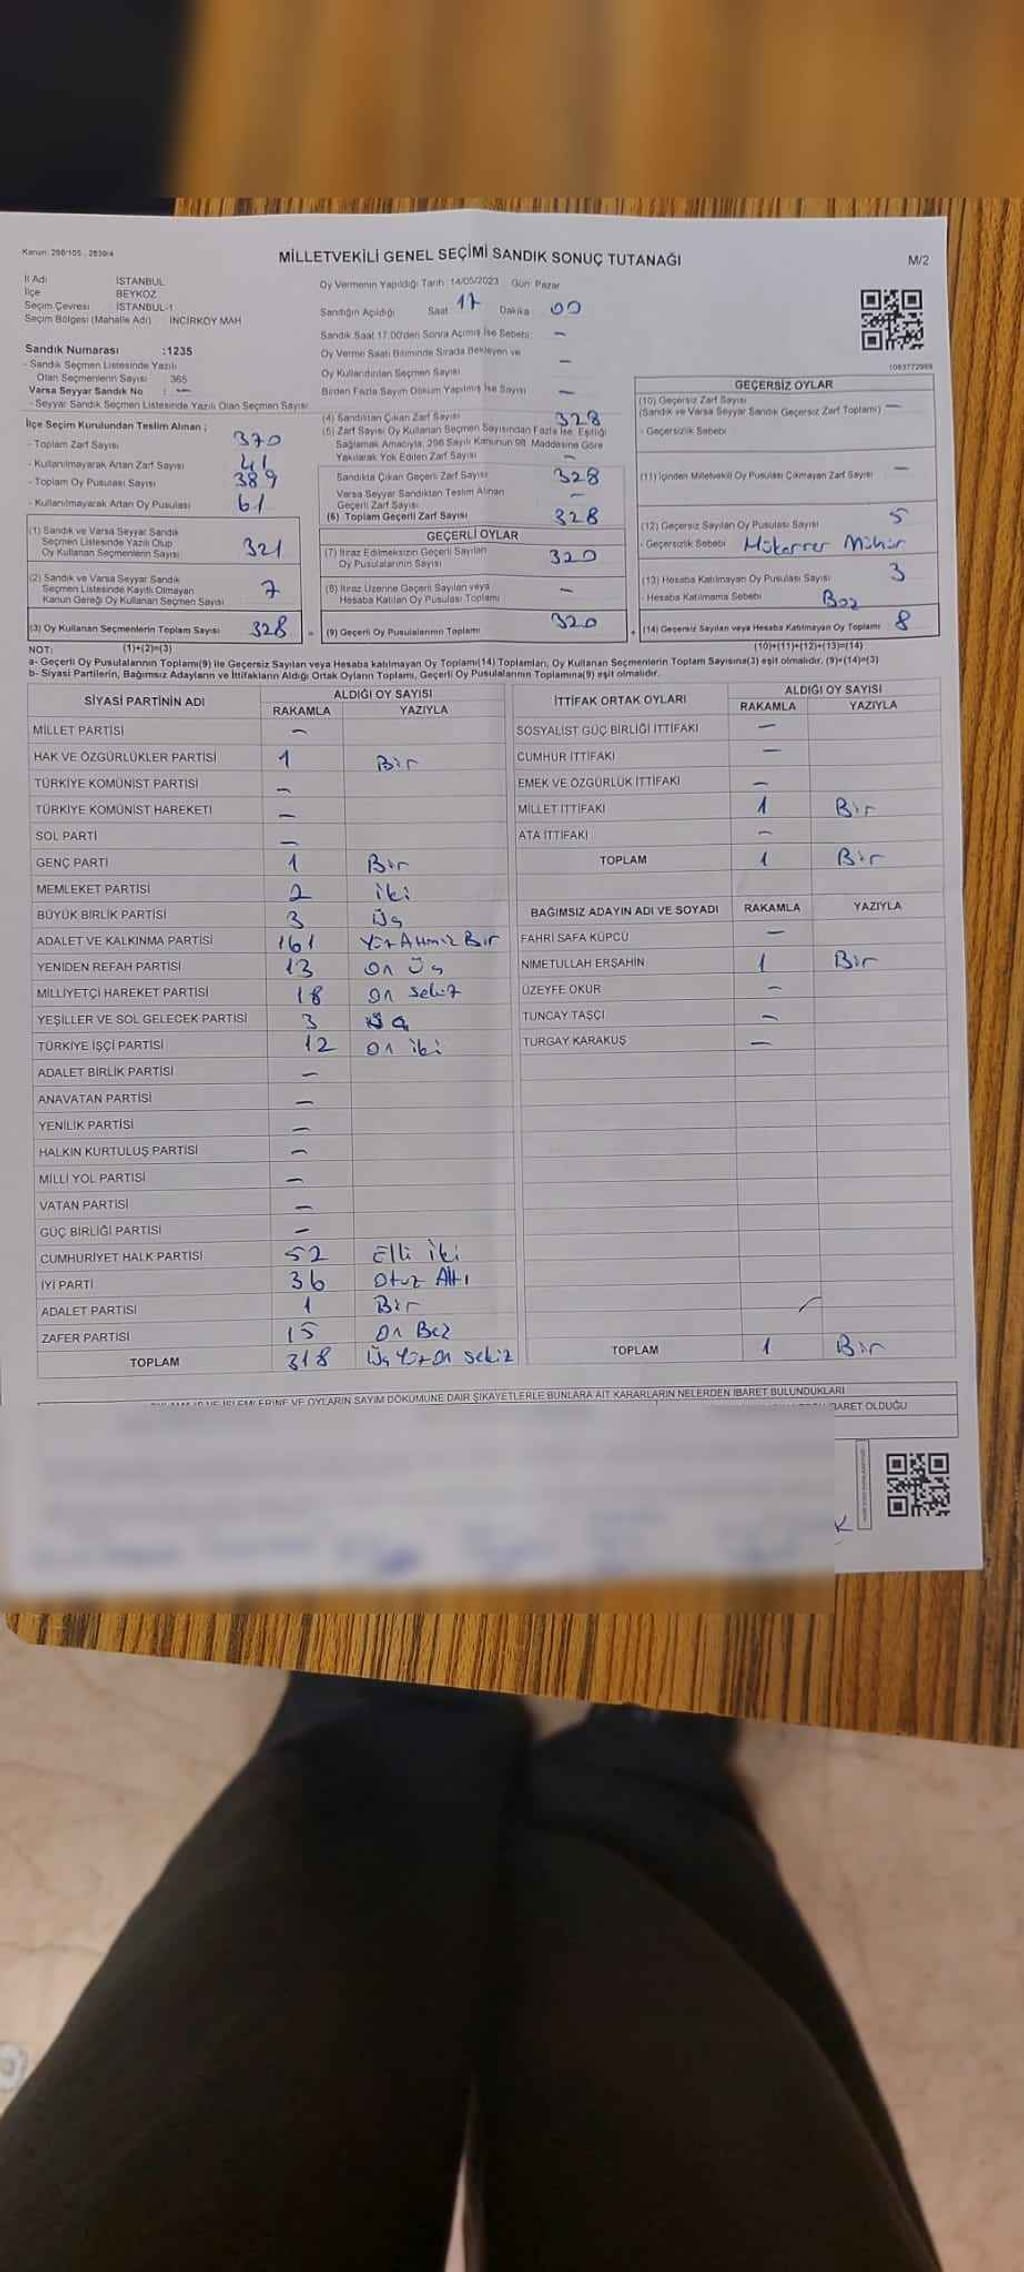 Kanun: 298/105 , 2839/4
MİLLETVEKİLİ GENEL SEÇİMİ SANDIK SONUÇ TUTANAĞI
M/2
İl Adı İSTANBUL
İlçe BEYKOZ
Seçim Çevresi İSTANBUL-1
Seçim Bölgesi (Mahalle Adı) İNCİRKÖY MAH
Sandık Numarası :1235
- Sandık Seçmen Listesinde Yazılı
Olan Seçmenlerin Sayısı 365
Varsa Seyyar Sandık No : —
- Seyyar Sandık Seçmen Listesinde Yazılı Olan Seçmen Sayısı
İlçe Seçim Kurulundan Teslim Alınan ;
- Toplam Zarf Sayısı 370
- Kullanılmayarak Artan Zarf Sayısı 41
- Toplam Oy Pusulası Sayısı 389
- Kullanılmayarak Artan Oy Pusulası 61
(1) Sandık ve Varsa Seyyar Sandık
Seçmen Listesinde Yazılı Olup
Oy Kullanan Seçmenlerin Sayısı 321
(2) Sandık ve Varsa Seyyar Sandık
Seçmen Listesinde Kayıtlı Olmayan
Kanun Gereği Oy Kullanan Seçmen Sayısı 7
(3) Oy Kullanan Seçmenlerin Toplam Sayısı 328
Oy Vermenin Yapıldığı Tarih 14/05/2023 Gün: Pazar
Sandığın Açıldığı Saat 17 Dakika 00
Sandık Saat 17:00'den Sonra Açılmış İse Sebebi: —
Oy Verme Saati Bitiminde Sırada Bekleyen ve
Oy Kullandırılan Seçmen Sayısı —
Birden Fazla Sayım Döküm Yapılmış İse Sayısı —
(4) Sandıktan Çıkan Zarf Sayısı 328
(5) Zarf Sayısı Oy Kullanan Seçmen Sayısından Fazla İse, Eşitliği
Sağlamak Amacıyla, 298 Sayılı Kanunun 98. Maddesine Göre
Yakılarak Yok Edilen Zarf Sayısı —
Sandıkta Çıkan Geçerli Zarf Sayısı 328
Varsa Seyyar Sandıktan Teslim Alınan
Geçerli Zarf Sayısı —
(6) Toplam Geçerli Zarf Sayısı 328
GEÇERLİ OYLAR
(7) İtiraz Edilmeksizin Geçerli Sayılan
Oy Pusulalarının Sayısı 320
(8) İtiraz Üzerine Geçerli Sayılan veya
Hesaba Katılan Oy Pusulası Toplamı —
= (9) Geçerli Oy Pusulalarının Toplamı 320
1063772999
GEÇERSİZ OYLAR
(10) Geçersiz Zarf Sayısı
(Sandık ve Varsa Seyyar Sandık Geçersiz Zarf Toplamı) —
- Geçersizlik Sebebi
(11) İçinden Milletvekili Oy Pusulası Çıkmayan Zarf Sayısı —
(12) Geçersiz Sayılan Oy Pusulası Sayısı 5
- Geçersizlik Sebebi Mükerrer Mühür
(13) Hesaba Katılmayan Oy Pusulası Sayısı 3
- Hesaba Katılmama Sebebi Boş
+ (14) Geçersiz Sayılan veya Hesaba Katılmayan Oy Toplamı 8
NOT: (1)+(2)=(3) (10)+(11)+(12)+(13)=(14)
a- Geçerli Oy Pusulalarının Toplamı(9) ile Geçersiz Sayılan veya Hesaba katılmayan Oy Toplamı(14) Toplamları, Oy Kullanan Seçmenlerin Toplam Sayısına(3) eşit olmalıdır. (9)+(14)=(3)
b- Siyasi Partilerin, Bağımsız Adayların ve İttifakların Aldığı Ortak Oyların Toplamı, Geçerli Oy Pusulalarının Toplamına(9) eşit olmalıdır.
SİYASİ PARTİNİN ADI ALDIĞI OY SAYISI
RAKAMLA YAZIYLA
MİLLET PARTİSİ —
HAK VE ÖZGÜRLÜKLER PARTİSİ 1 Bir
TÜRKİYE KOMÜNİST PARTİSİ —
TÜRKİYE KOMÜNİST HAREKETİ —
SOL PARTİ —
GENÇ PARTİ 1 Bir
MEMLEKET PARTİSİ 2 iki
BÜYÜK BİRLİK PARTİSİ 3 Üç
ADALET VE KALKINMA PARTİSİ 161 Yüz Atmış Bir
YENİDEN REFAH PARTİSİ 13 On Üç
MİLLİYETÇİ HAREKET PARTİSİ 18 On sekiz
YEŞİLLER VE SOL GELECEK PARTİSİ 3 Üç
TÜRKİYE İŞÇİ PARTİSİ 12 On iki
ADALET BİRLİK PARTİSİ —
ANAVATAN PARTİSİ —
YENİLİK PARTİSİ —
HALKIN KURTULUŞ PARTİSİ —
MİLLİ YOL PARTİSİ —
VATAN PARTİSİ —
GÜÇ BİRLİĞİ PARTİSİ —
CUMHURİYET HALK PARTİSİ 52 Elli İki
İYİ PARTİ 36 Otuz Altı
ADALET PARTİSİ 1 Bir
ZAFER PARTİSİ 15 On Beş
TOPLAM 318 Üç Yüz On Sekiz
İTTİFAK ORTAK OYLARI ALDIĞI OY SAYISI
RAKAMLA YAZIYLA
SOSYALİST GÜÇ BİRLİĞİ İTTİFAKI —
CUMHUR İTTİFAKI —
EMEK VE ÖZGÜRLÜK İTTİFAKI —
MİLLET İTTİFAKI 1 Bir
ATA İTTİFAKI —
TOPLAM 1 Bir
BAĞIMSIZ ADAYIN ADI VE SOYADI RAKAMLA YAZIYLA
FAHRİ SAFA KÜPCÜ —
NİMETULLAH ERŞAHİN 1 Bir
ÜZEYFE OKUR —
TUNCAY TAŞÇI —
TURGAY KARAKUŞ —
TOPLAM 1 Bir
VE OYLARIN SAYIM DÖKÜMÜNE DAİR ŞİKAYETLERLE BUNLARA AİT KARARLARIN NELERDEN İBARET BULUNDUKLARI
OLDUĞU